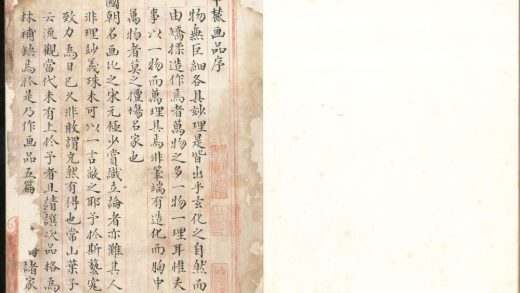 中麓画品序
物無巨細各具妙理是皆出乎玄化之自然而
由矯揉造作焉者萬物之多一物一理耳惟夫
事以一物而萬理具焉非筆端有造化而胸中
萬物者莫之擅場名家也
國朝名画比之宋元極少賞識立論者亦難其人
非理妙義殊未可以一言蔽之耶予於斯藝究
致力焉日已久非敢謂充然有得也常山葉子
云流觀當代未有上於予者且請譔次品格為
林補缺焉於是乃作画品五篇
諸家